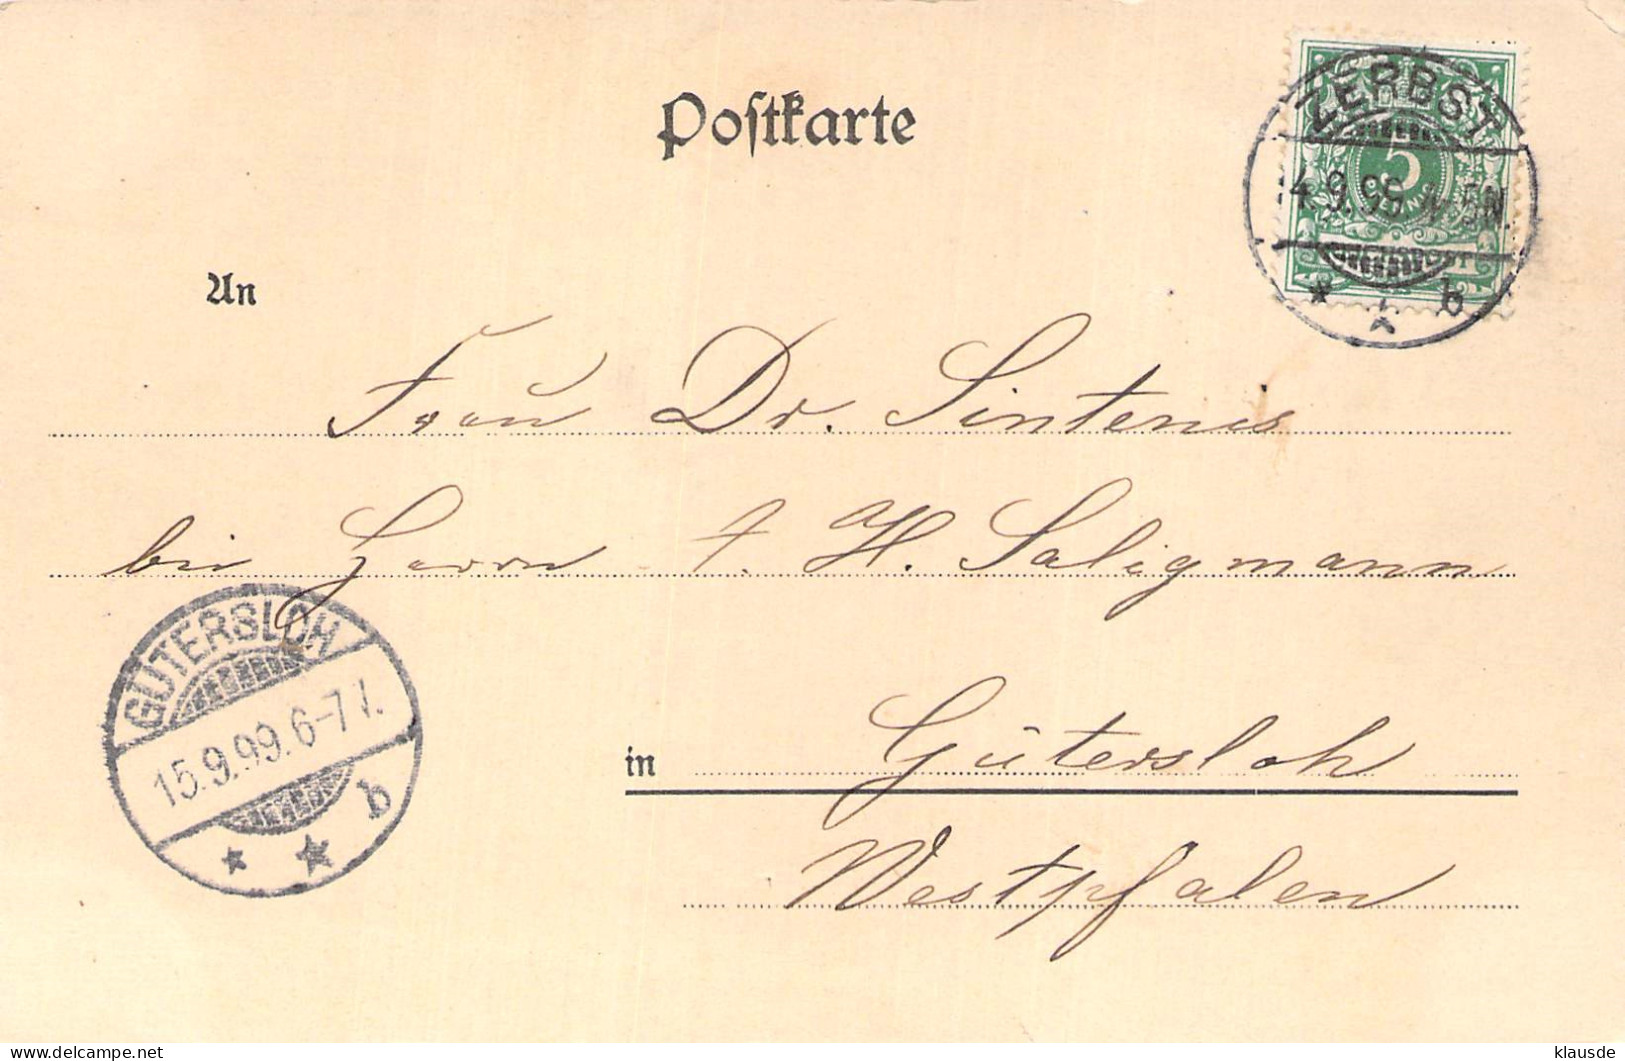 Postkarte
ZERBST
4.9.99. 4-5N.
5
b
An
Frau Dr. Sintenis
bei Herrn A. H. Saligmann
GÜTERSLOH
15.9.99. 6-7
b
in Gütersloh
Westpfalen
klausde